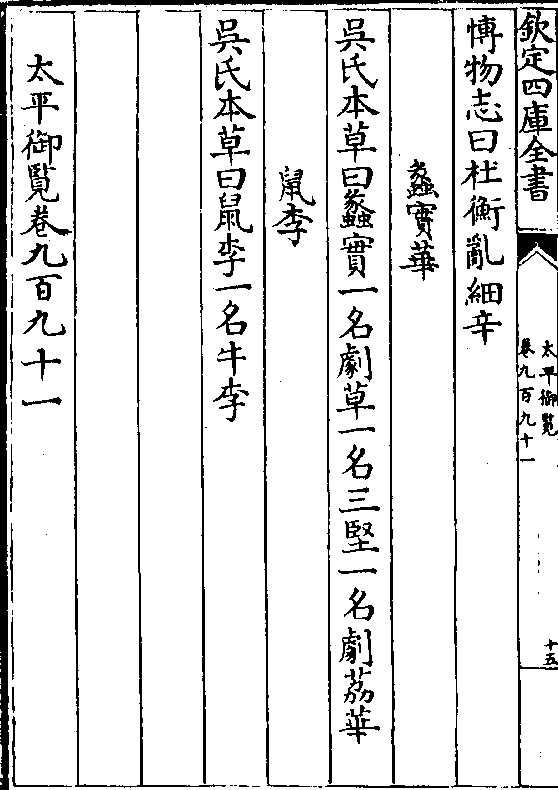 欽定四庫全書
太平御覧
卷九百九十一
十五
博物志曰杜衡亂細辛
蠡實華
吳氏本草曰蠡實一名劇草一名三堅一名劇荔華
鼠李
吳氏本草曰鼠李一名牛李
太平御覧卷九百九十一